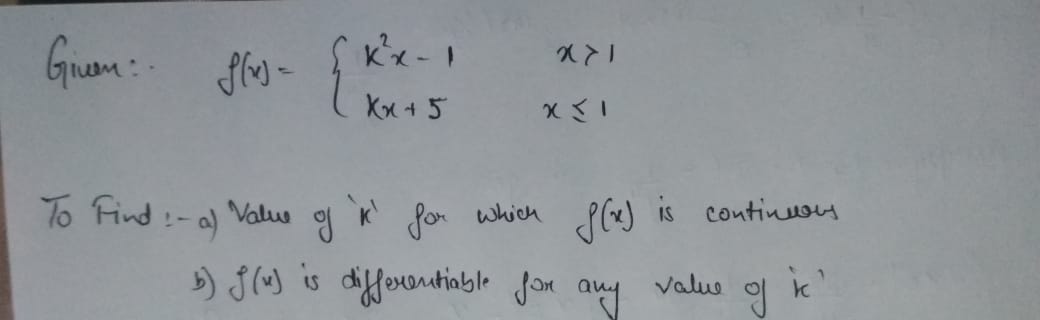 Given:- f(x) = { k²x - 1 x > 1
kx + 5 x ≤ 1
To Find :- a) Value of 'k' for which f(x) is continuous
b) f(x) is differentiable for any value of 'k'